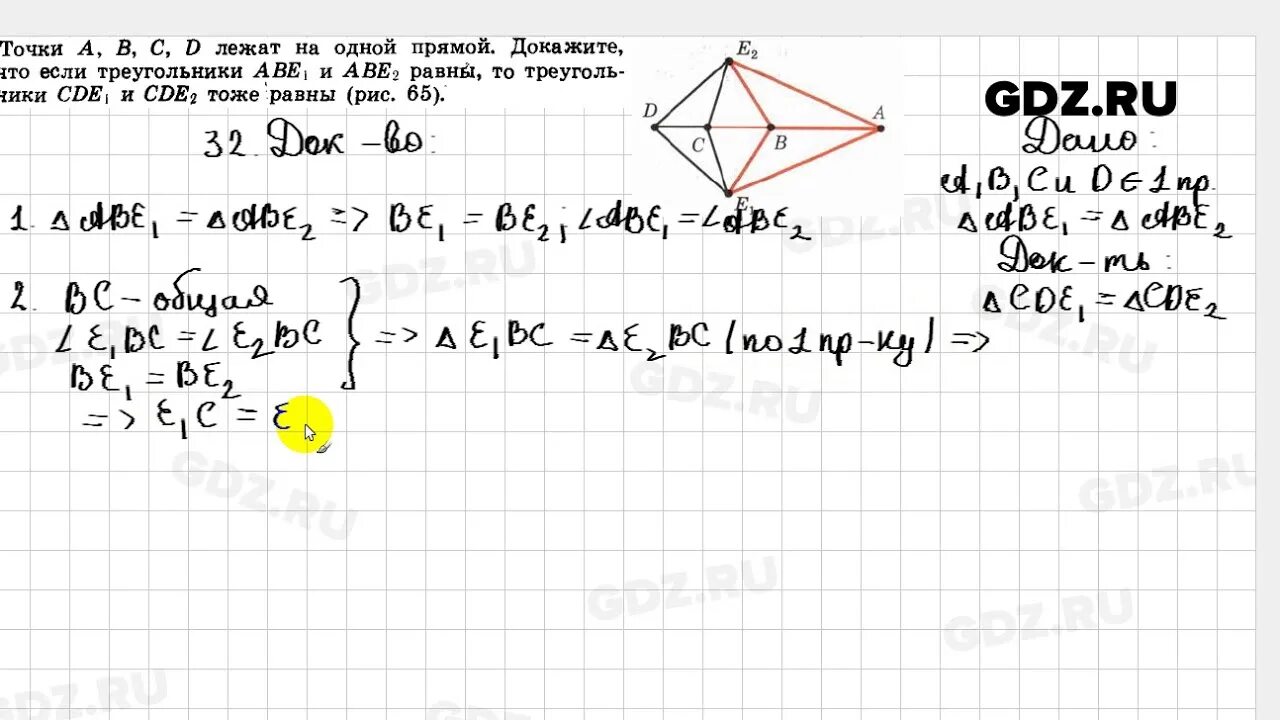 Точки A, B, C, D лежат на одной прямой. Докажите,
что если треугольники ABE₁ и ABE₂ равны, то треуголь-
ники CDE₁ и CDE₂ тоже равны (рис. 65).
E₂
D
C
B
A
E₁
GDZ.RU
32. Док-во:
Дано:
A, B, C и D ∈ 1 пр.
△ABE₁ = △ABE₂
Док-ть:
△CDE₁ = △CDE₂
1. △ABE₁ = △ABE₂ => BE₁ = BE₂; ∠ABE₁ = ∠ABE₂
2. BC – общая
∠E₁BC = ∠E₂BC
BE₁ = BE₂
=> △E₁BC = △E₂BC (по 1 пр-ку) =>
=> E₁C = E
GDZ.RU
GDZ.RU
GDZ.RU
GDZ.RU
GDZ.RU
GDZ.RU
GDZ.RU
GDZ.RU
GDZ.RU
GDZ.RU
GDZ.RU